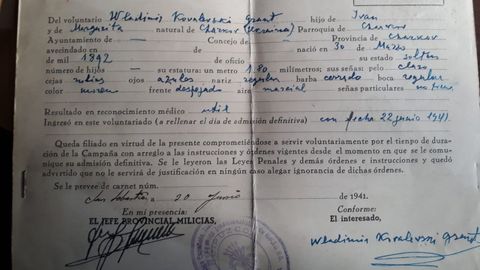 Del voluntario Wladimir Kovalevski Grant hijo de Ivan
y de Margarita natural de Charkov (Ucrania) Parroquia de Charkov
Ayuntamiento de — Concejo de — Provincia de Charkov
avecindado en nació en 30 de Marzo
de mil 1892 de oficio su estado soltero
número de hijos — su estatura: un metro 1.80 milímetros; sus señas: pelo claro
cejas rubias ojos azules nariz regular barba cerrada boca regular
color frente despejada aire marcial señales particulares no tiene
Resultado en reconocimiento médico util
Ingresó en este voluntariado (a rellenar el día de admisión definitiva) con fecha 22 junio 1941.
Queda filiado en virtud de la presente comprometiéndose a servir voluntariamente por el tiempo de duración de la Campaña con arreglo a las instrucciones y órdenes vigentes desde el momento en que se le comunique su admisión definitiva. Se le leyeron las Leyes Penales y demás órdenes e instrucciones y quedó advertido que no le servirá de justificación en ningún caso alegar ignorancia de dichas órdenes.
Se le provee de carnet núm.
San Sebastián a 20 Junio de 1941.
En mi presencia:
EL JEFE PROVINCIAL MILICIAS,
Conforme:
El interesado,
Wladimir Kovalevski Grant